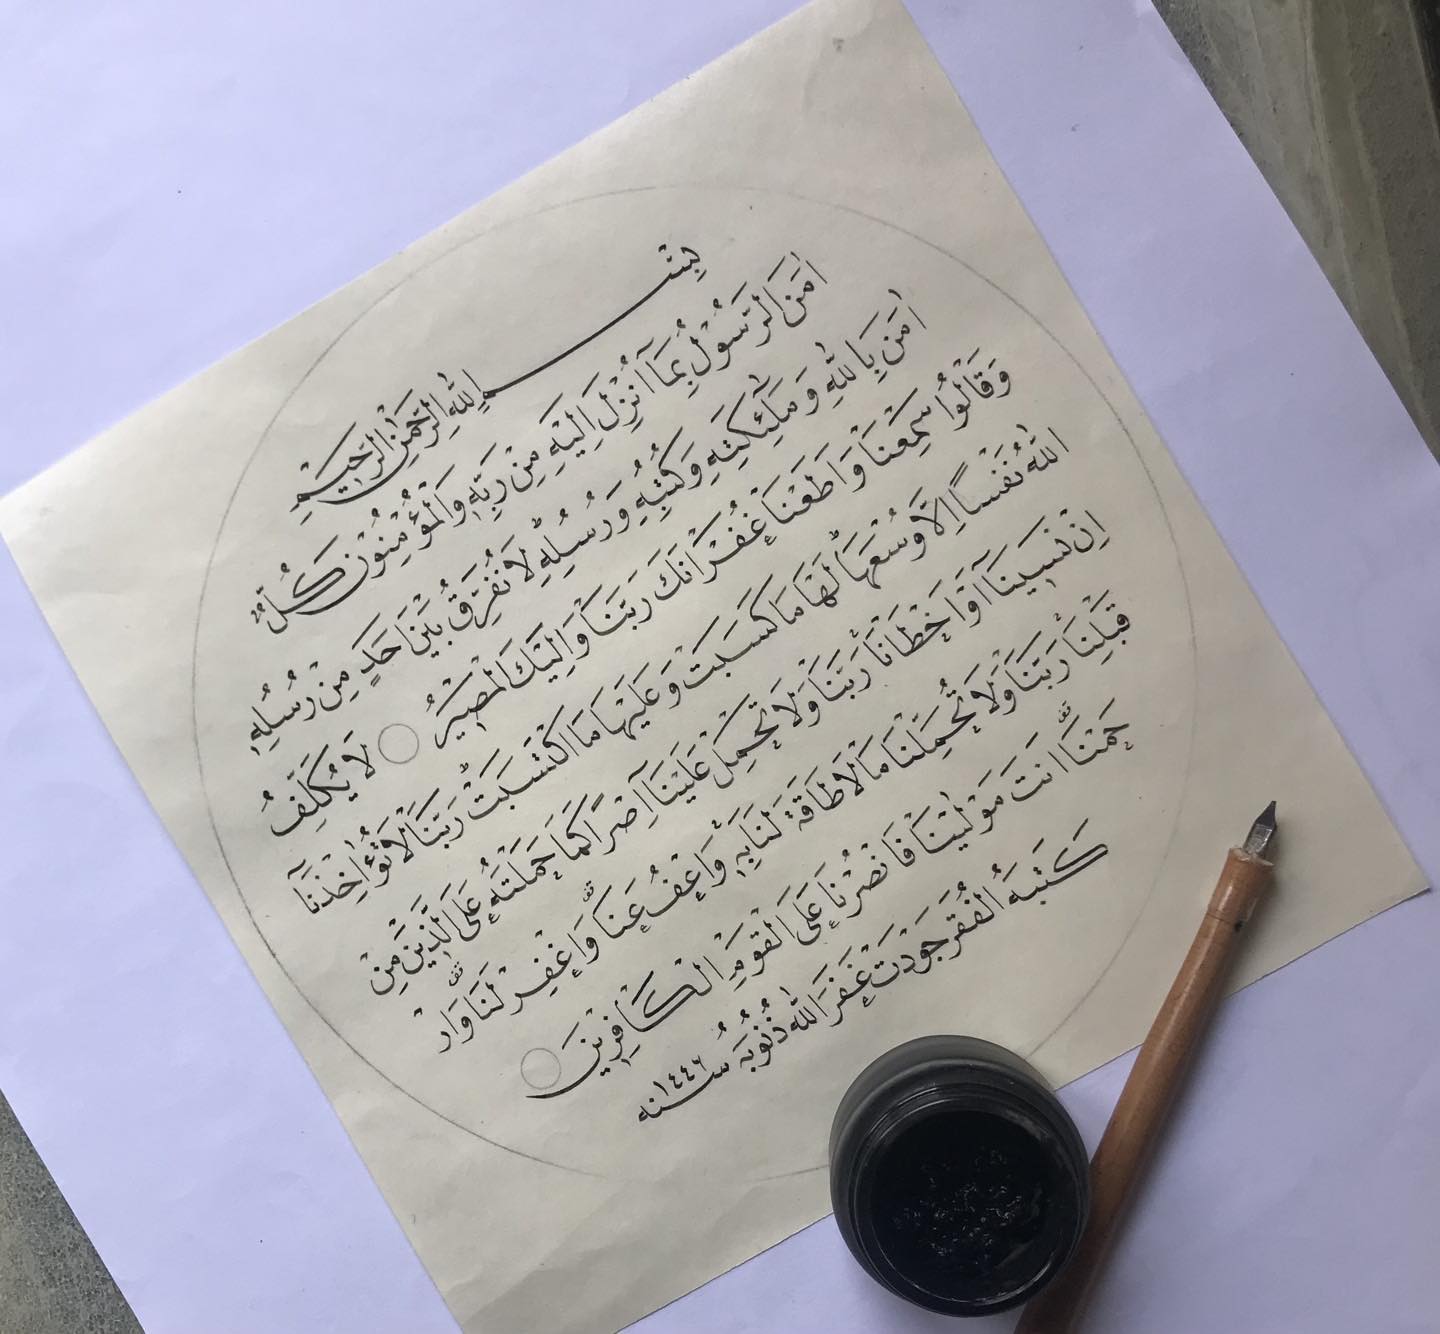 بِسْــــمِ اللهِ الرَّحْمٰنِ الرَّحِيْمِ
اٰمَنَ الرَّسُوْلُ بِمَآ اُنْزِلَ اِلَيْهِ مِنْ رَبِّهٖ وَالْمُؤْمِنُوْنَ كُلٌّ
اٰمَنَ بِاللهِ وَمَلٰٓئِكَتِهٖ وَكُتُبِهٖ وَرُسُلِهٖ لَا نُفَرِّقُ بَيْنَ اَحَدٍ مِنْ رُسُلِهٖ
وَقَالُوْا سَمِعْنَا وَاَطَعْنَا غُفْرَانَكَ رَبَّنَا وَاِلَيْكَ الْمَصِيْرُ لَا يُكَلِّفُ
اللهُ نَفْسًا اِلَّا وُسْعَهَا لَهَا مَا كَسَبَتْ وَعَلَيْهَا مَا اكْتَسَبَتْ رَبَّنَا لَا تُؤَاخِذْنَآ
اِنْ نَسِيْنَآ اَوْ اَخْطَأْنَا رَبَّنَا وَلَا تَحْمِلْ عَلَيْنَآ اِصْرًا كَمَا حَمَلْتَهُ عَلَى الَّذِيْنَ مِنْ
قَبْلِنَا رَبَّنَا وَلَا تُحَمِّلْنَا مَا لَا طَاقَةَ لَنَا بِهٖ وَاعْفُ عَنَّا وَاغْفِرْ لَنَا وَارْ
حَمْنَا اَنْتَ مَوْلٰينَا فَانْصُرْنَا عَلَى الْقَوْمِ الْكَافِرِيْنَ
كَتَبَهُ الْفَقِرْ جَوْدَتْ غَفَرَ اللهُ ذُنُوْبَهُ سنه ١٤٤٦